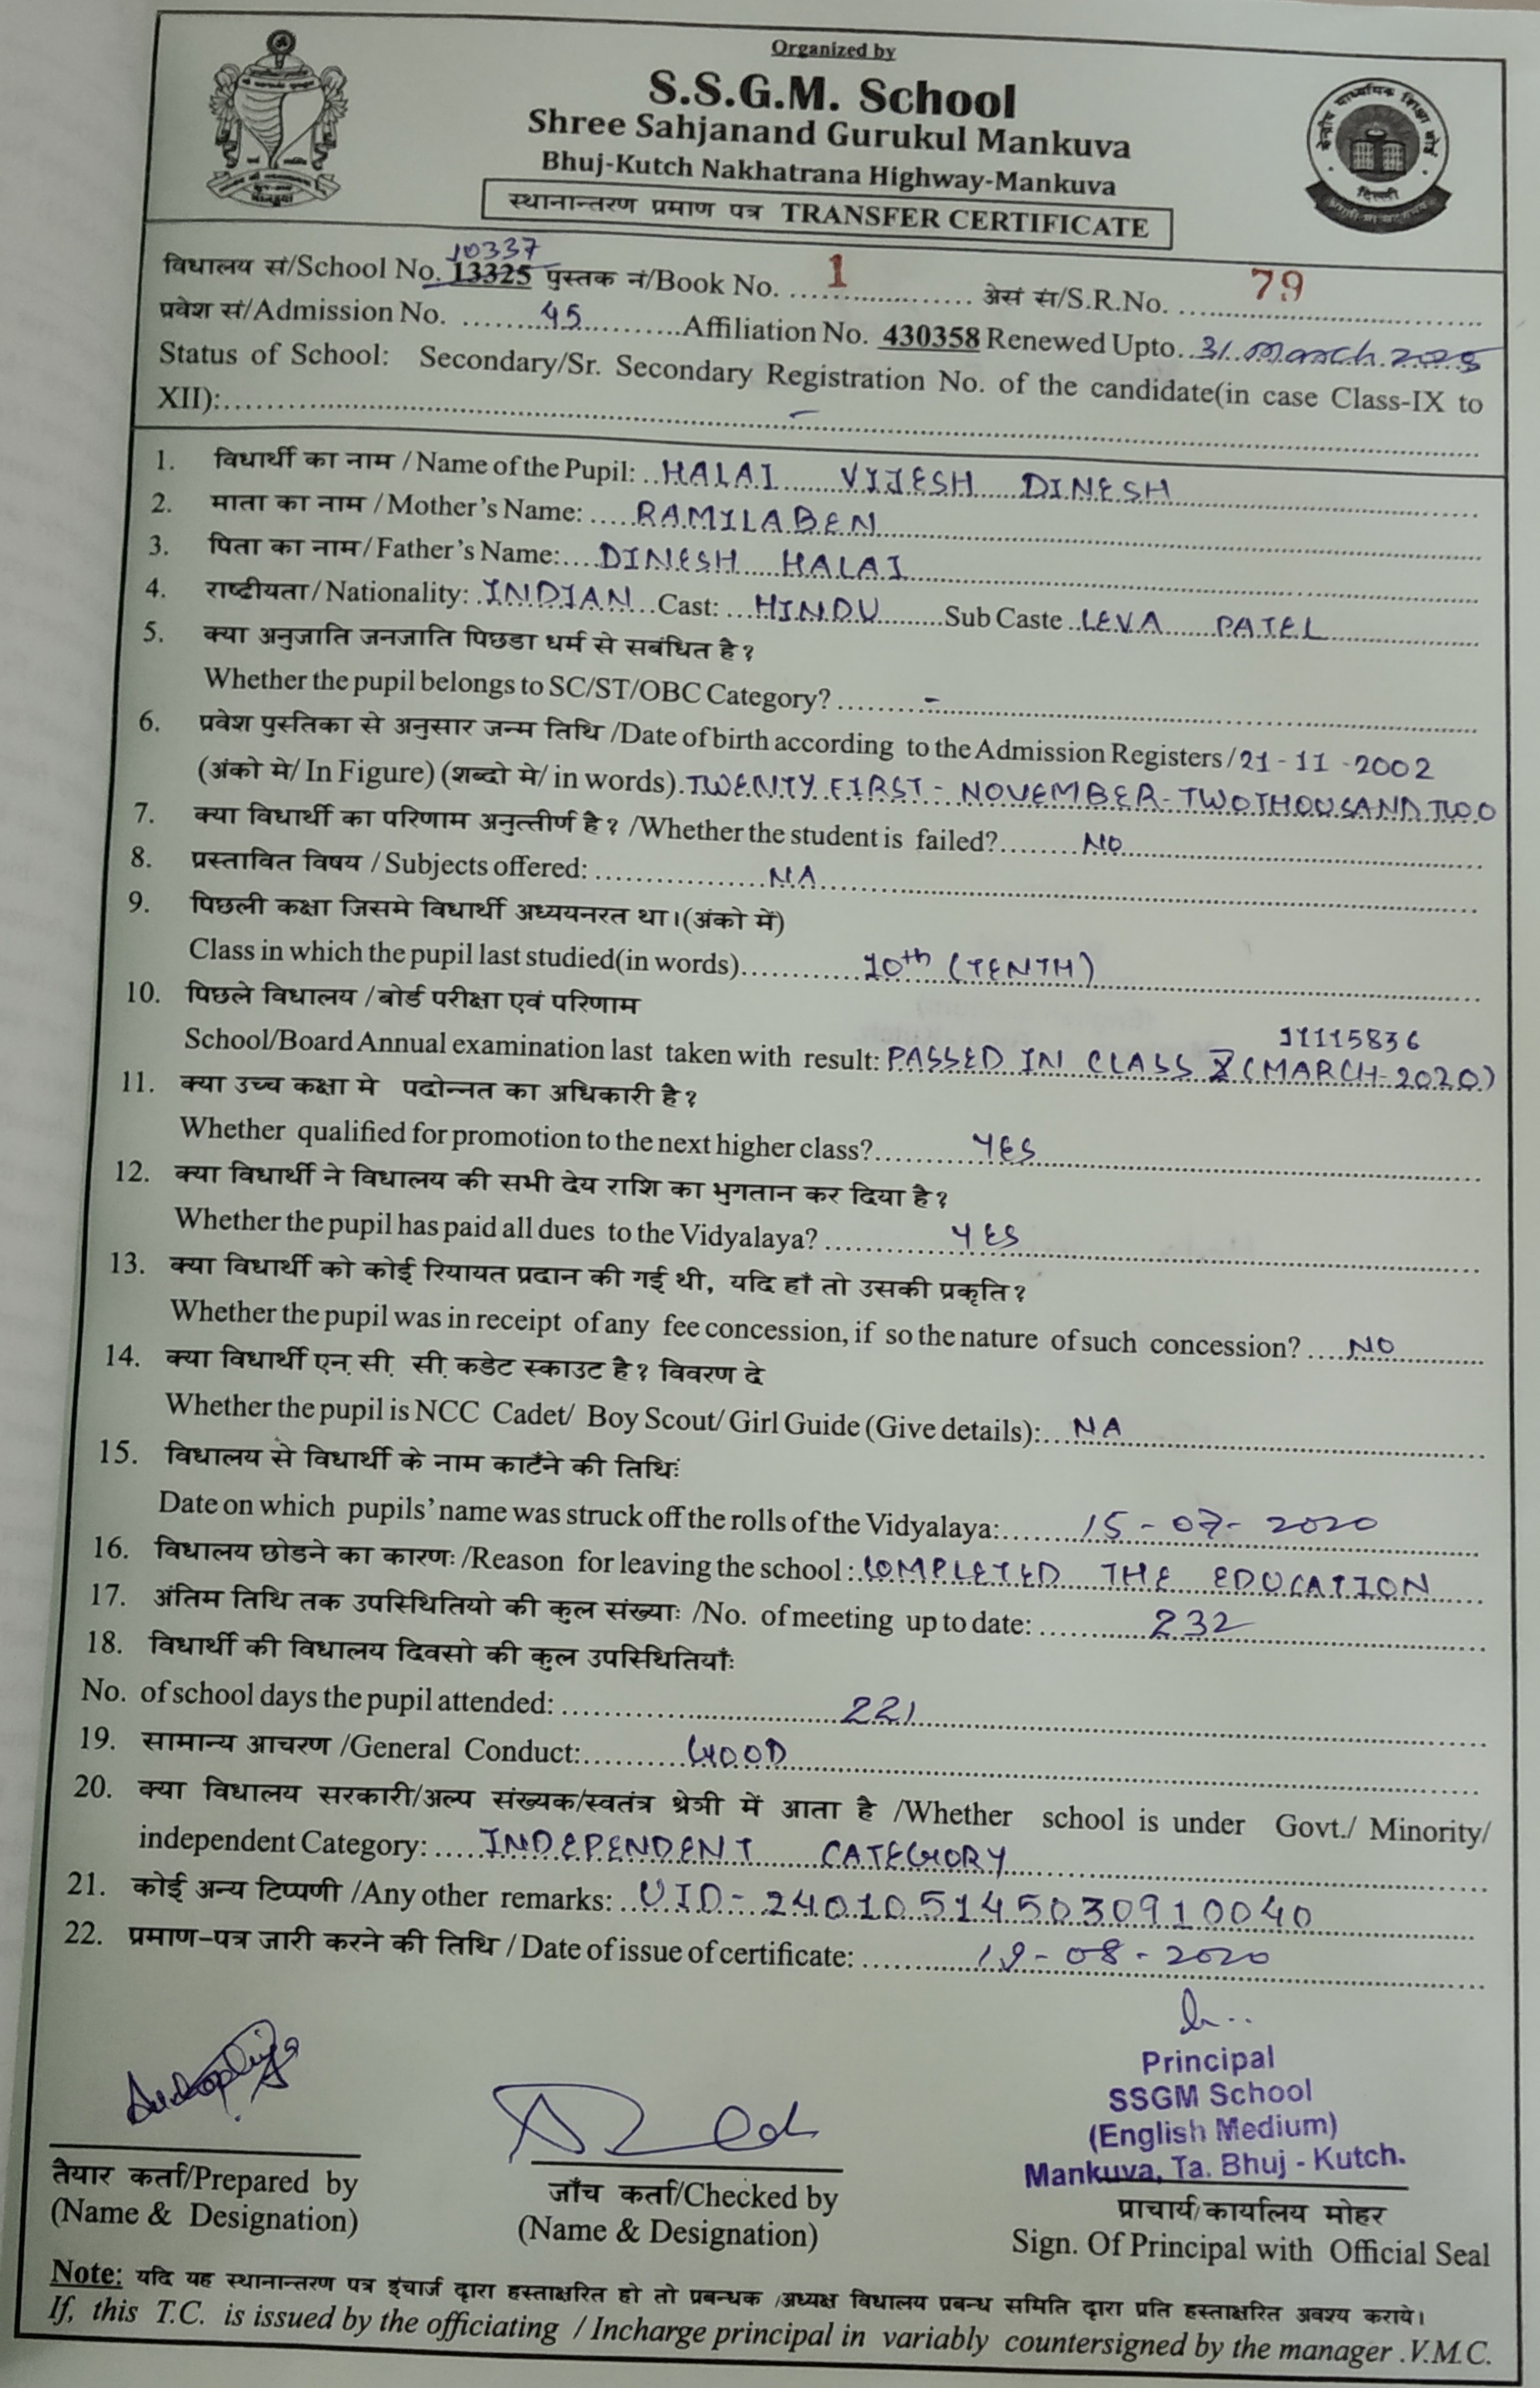 Organized by
S.S.G.M. School
Shree Sahjanand Gurukul Mankuva
Bhuj-Kutch Nakhatrana Highway-Mankuva
स्थानान्तरण प्रमाण पत्र TRANSFER CERTIFICATE
केन्द्रीय माध्यमिक शिक्षा बोर्ड
दिल्ली
10337
विधालय सं/School No. 13325 पुस्तक नं/Book No. 1 अेसं सं/S.R.No. 79
प्रवेश सं/Admission No. 45 Affiliation No. 430358 Renewed Upto. 31 March 2025
Status of School: Secondary/Sr. Secondary Registration No. of the candidate(in case Class-IX to
XII): -
1. विधार्थी का नाम / Name of the Pupil: HALAI VIJESH DINESH
2. माता का नाम / Mother's Name: RAMILABEN
3. पिता का नाम/ Father's Name: DINESH HALAI
4. राष्टीयता/ Nationality: INDIAN Cast: HINDU Sub Caste LEVA PATEL
5. क्या अनुजाति जनजाति पिछडा धर्म से सबंधित है?
Whether the pupil belongs to SC/ST/OBC Category? -
6. प्रवेश पुस्तिका से अनुसार जन्म तिथि /Date of birth according to the Admission Registers / 21-11-2002
(अंको मे/ In Figure) (शब्दो मे/ in words). TWENTY FIRST - NOVEMBER - TWO THOUSAND TWO
7. क्या विधार्थी का परिणाम अनुत्तीर्ण है? /Whether the student is failed? NO
8. प्रस्तावित विषय / Subjects offered: NA
9. पिछली कक्षा जिसमे विधार्थी अध्ययनरत था।(अंको में)
Class in which the pupil last studied(in words) 10th (TENTH)
10. पिछले विधालय /बोर्ड परीक्षा एवं परिणाम
11115836
School/Board Annual examination last taken with result: PASSED IN CLASS X (MARCH-2020)
11. क्या उच्च कक्षा मे पदोन्नत का अधिकारी है?
Whether qualified for promotion to the next higher class? YES
12. क्या विधार्थी ने विधालय की सभी देय राशि का भुगतान कर दिया है?
Whether the pupil has paid all dues to the Vidyalaya? YES
13. क्या विधार्थी को कोई रियायत प्रदान की गई थी, यदि हाँ तो उसकी प्रकृति?
Whether the pupil was in receipt of any fee concession, if so the nature of such concession? NO
14. क्या विधार्थी एन.सी. सी. कडेट स्काउट है? विवरण दे
Whether the pupil is NCC Cadet/ Boy Scout/ Girl Guide (Give details): NA
15. विधालय से विधार्थी के नाम काटँने की तिथिः
Date on which pupils' name was struck off the rolls of the Vidyalaya: 15-07-2020
16. विधालय छोडने का कारणः /Reason for leaving the school : COMPLETED THE EDUCATION
17. अंतिम तिथि तक उपस्थितियो की कुल संख्याः /No. of meeting up to date: 232
18. विधार्थी की विधालय दिवसो की कुल उपस्थितियाँः
No. of school days the pupil attended: 221
19. सामान्य आचरण /General Conduct: GOOD
20. क्या विधालय सरकारी/अल्प संख्यक/स्वतंत्र श्रेत्री में आता है /Whether school is under Govt./ Minority/
independent Category: INDEPENDENT CATEGORY
21. कोई अन्य टिप्पणी /Any other remarks: UID-240105145030910040
22. प्रमाण-पत्र जारी करने की तिथि / Date of issue of certificate: 19-08-2020
Principal
SSGM School
(English Medium)
Mankuva, Ta. Bhuj - Kutch.
तैयार कर्ता/Prepared by
(Name & Designation)
जाँच कर्ता/Checked by
(Name & Designation)
प्राचार्य/कार्यालय मोहर
Sign. Of Principal with Official Seal
Note: यदि यह स्थानान्तरण पत्र इंचार्ज द्वारा हस्ताक्षरित हो तो प्रबन्धक /अध्यक्ष विधालय प्रबन्ध समिति द्वारा प्रति हस्ताक्षरित अवश्य कराये।
If, this T.C. is issued by the officiating / Incharge principal in variably countersigned by the manager .V.M.C.